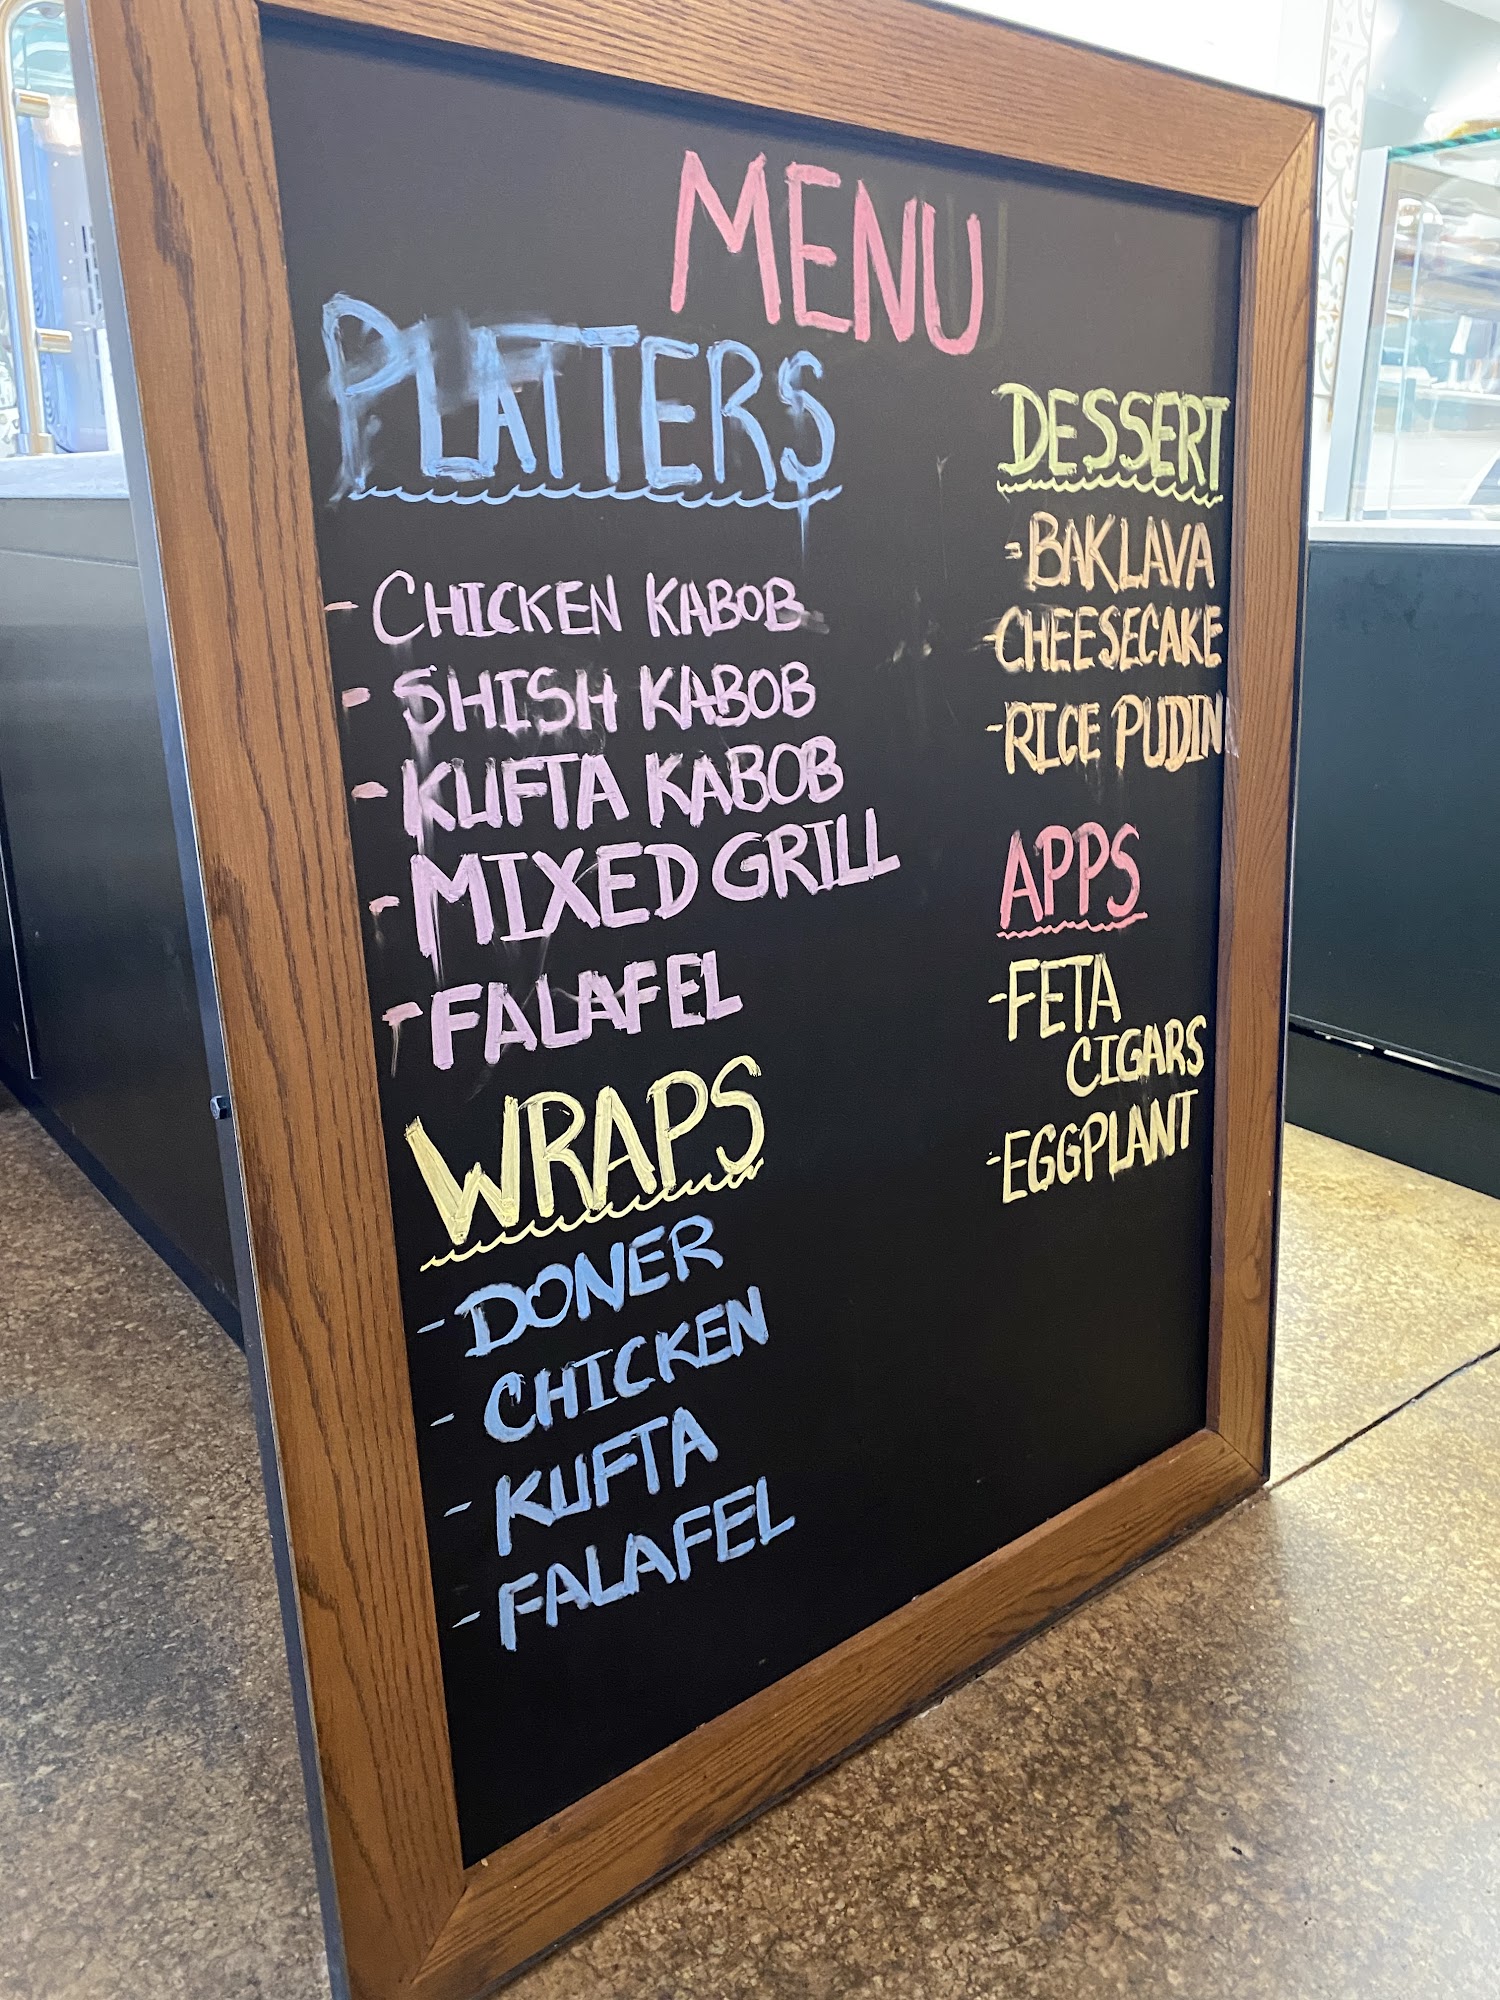 MENU
PLATTERS
- CHICKEN KABOB
- SHISH KABOB
- KUFTA KABOB
- MIXED GRILL
- FALAFEL
WRAPS
- DONER
- CHICKEN
- KUFTA
- FALAFEL
DESSERT
- BAKLAVA
- CHEESECAKE
- RICE PUDIN
APPS
- FETA
CIGARS
- EGGPLANT